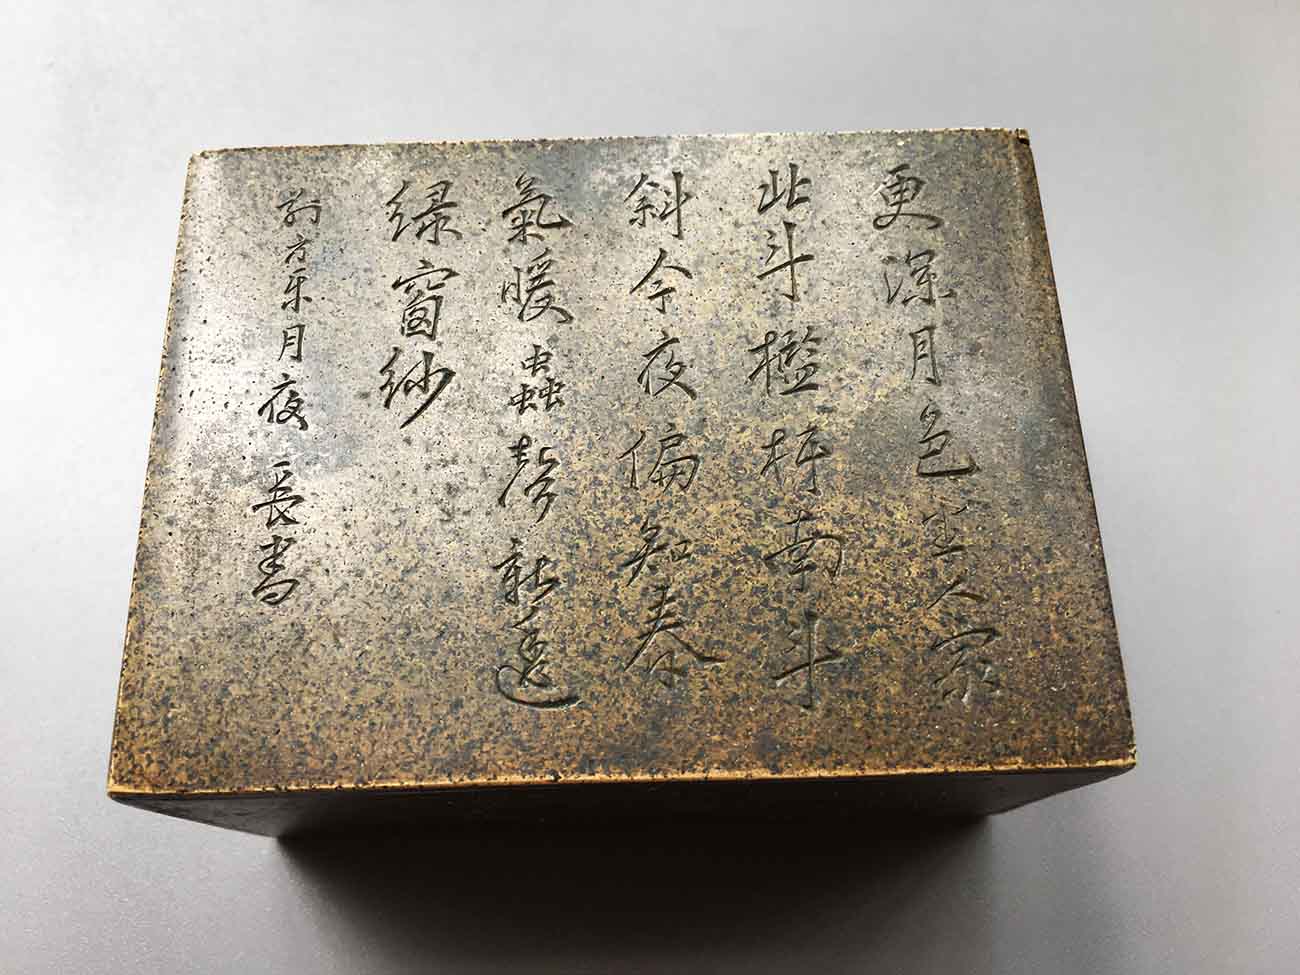 更深月色半人家
北斗檻杆南斗
斜今夜偏知春
氣暖蟲聲新透
綠窗紗
劉方平月夜 長書